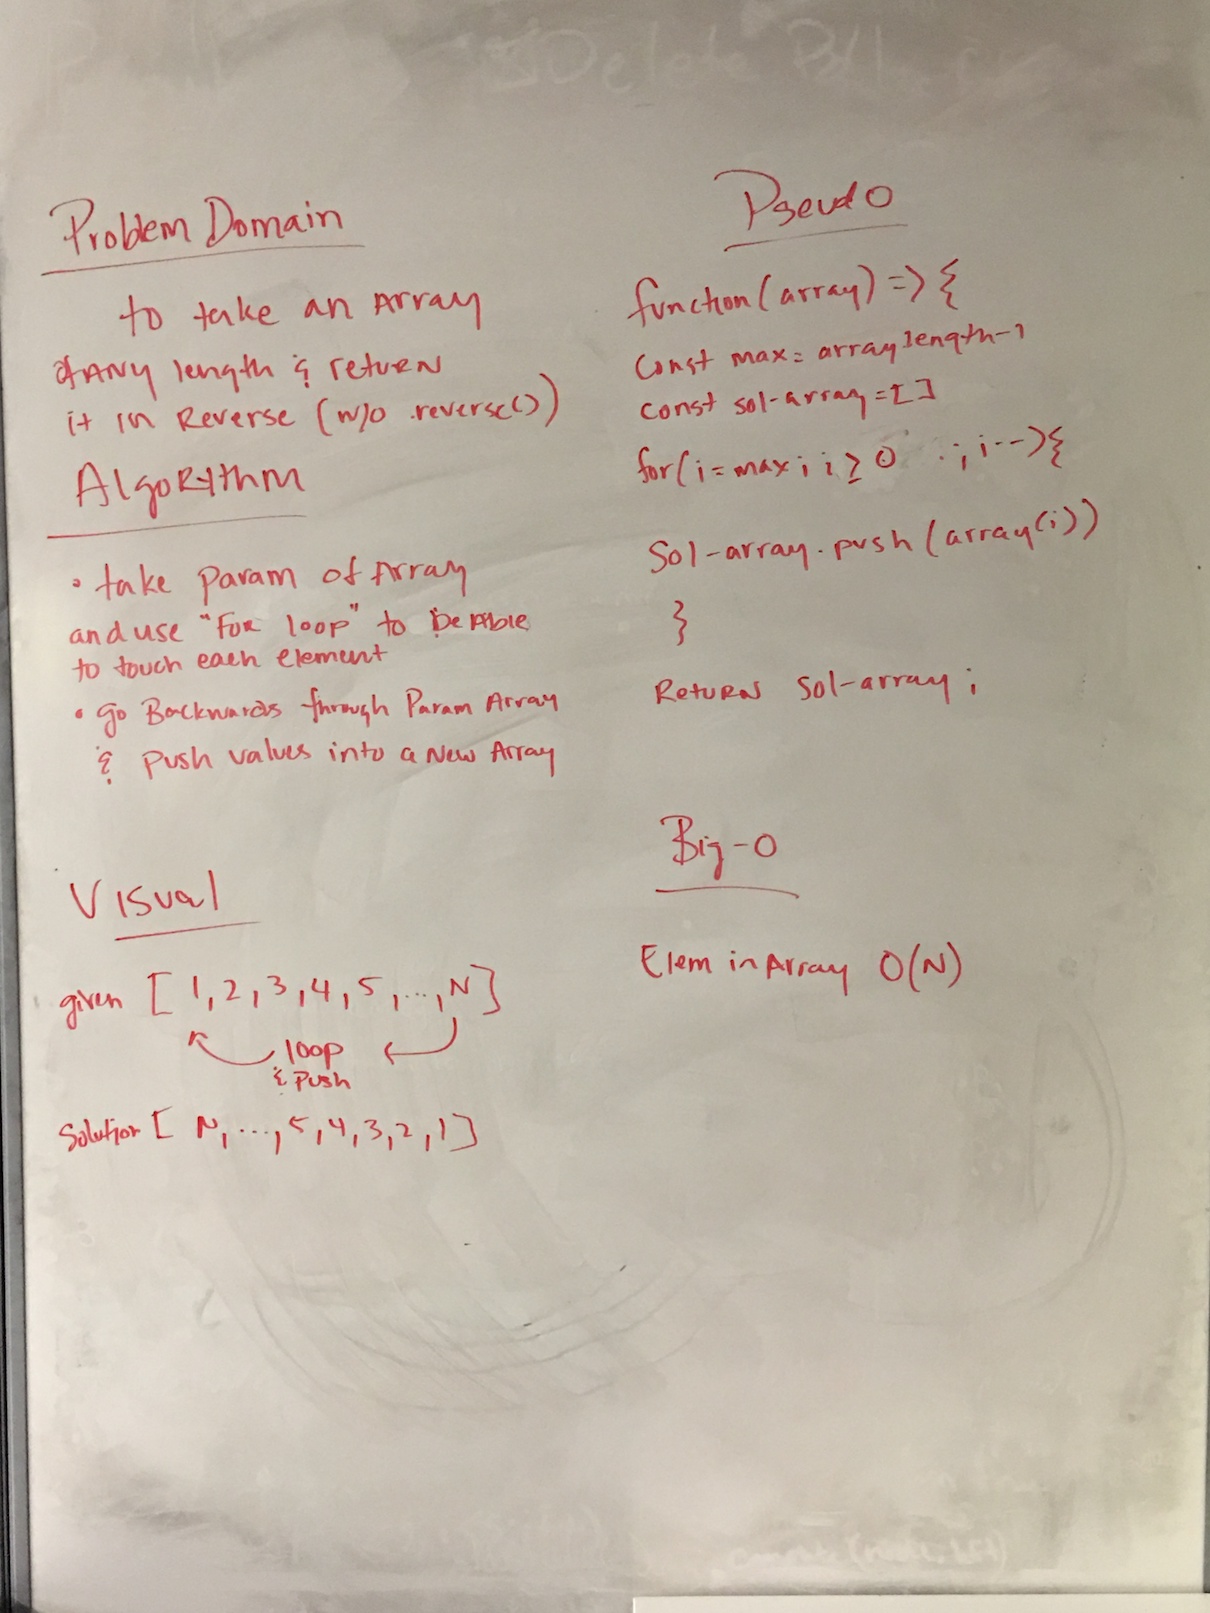 Delete
Problem Domain
to take an Array
of ANY length & return
it in Reverse (w/o .reverse())
Algorythm
• take param of Array
and use "For loop" to be Able
to touch each element
• go Backwards through Param Array
& push values into a New Array
Visual
given [1,2,3,4,5,...,N]
loop
& Push
Solution [N,...,5,4,3,2,1]
Pseudo
function(array) => {
const max = array length-1
const sol-array = []
for(i = max; i ≥ 0 ; i--){
Sol-array.push(array(i))
}
Return sol-array;
Big-O
Elem in Array O(N)